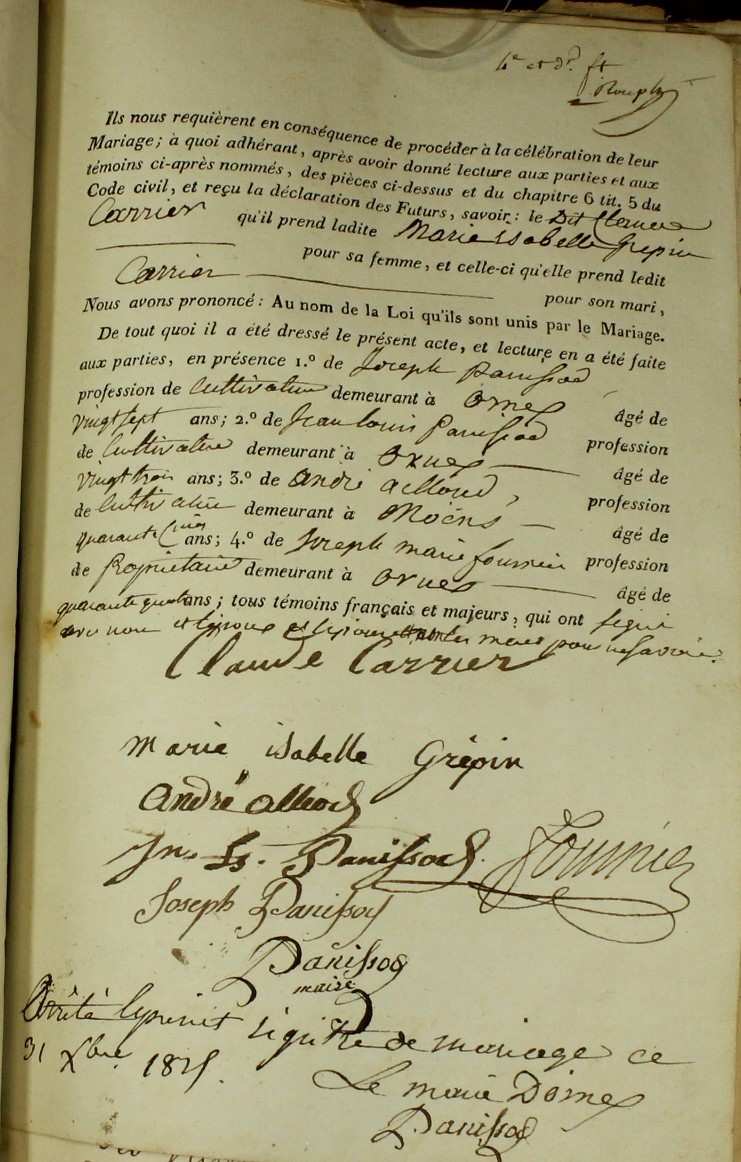 4e et dr. ft
Ils nous requièrent en conséquence de procéder à la célébration de leur
Mariage; à quoi adhérant, après avoir donné lecture aux parties et aux
témoins ci-après nommés, des pièces ci-dessus et du chapitre 6 tit. 5 du
Code civil, et reçu la déclaration des Futurs, savoir: le Dit
Carrier qu'il prend ladite Marie isabelle Grépin
pour sa femme, et celle-ci qu'elle prend ledit
Carrier pour son mari,
Nous avons prononcé: Au nom de la Loi qu'ils sont unis par le Mariage.
De tout quoi il a été dressé le présent acte, et lecture en a été faite
aux parties, en présence 1.º de Joseph Panissod
profession de Cultivateur demeurant à Ornex âgé de
vingt sept ans; 2.º de Jean Louis Panissod profession
de Cultivateur demeurant à Ornex âgé de
vingt trois ans; 3.º de andré alliod, profession
de Cultivateur demeurant à Moëns âgé de
quarante cinq ans; 4.º de Joseph marie fournier profession
de Propriétaire demeurant à Ornex âgé de
quarante quatre ans; tous témoins français et majeurs, qui ont signé
avec nous et l'époux et l'épouse les meres pour ne savoir.
Claude Carrier
Marie isabelle Grépin
André alliod
Jn. Ls. Panissod. Fournier
Joseph Panissod
Panissod
maire
Arrêté le présent registre de mariage ce
31 Xbre 1825.
Le maire D'ornex
Panissod